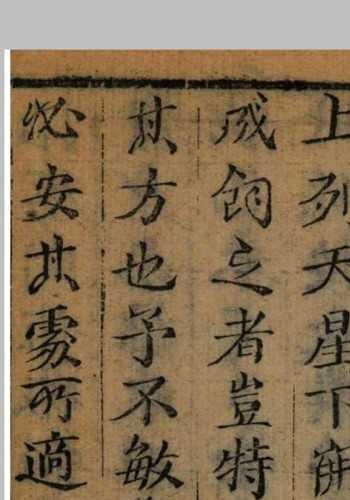 上列天星下
成飼之者豈特
其方也予不敏
必安其處所適